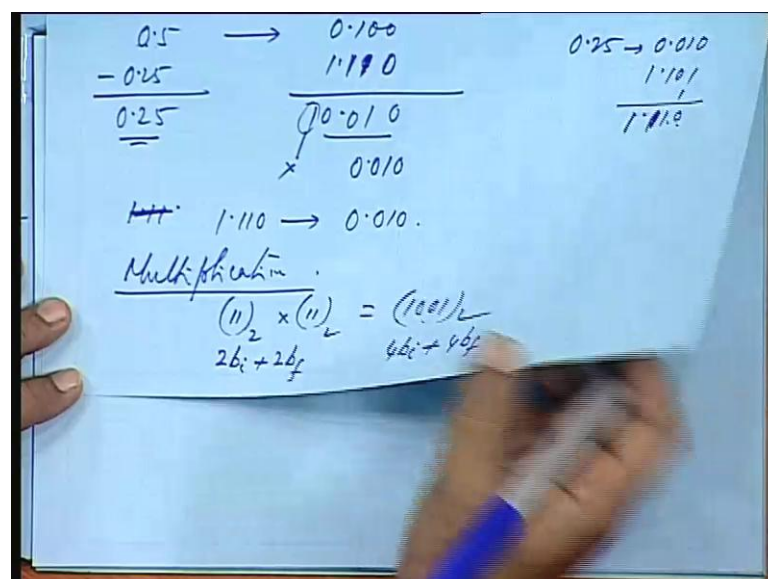 0.5 → 0.100
- 0.25 1.110
0.25 10.010
× 0.010
0.25 → 0.010
1.101
1
1.110
1.110 → 0.010.
Multiplication.
(11)₂ × (11)₂ = (1001)₂
2bᵢ + 2b_f 4bᵢ + 4b_f